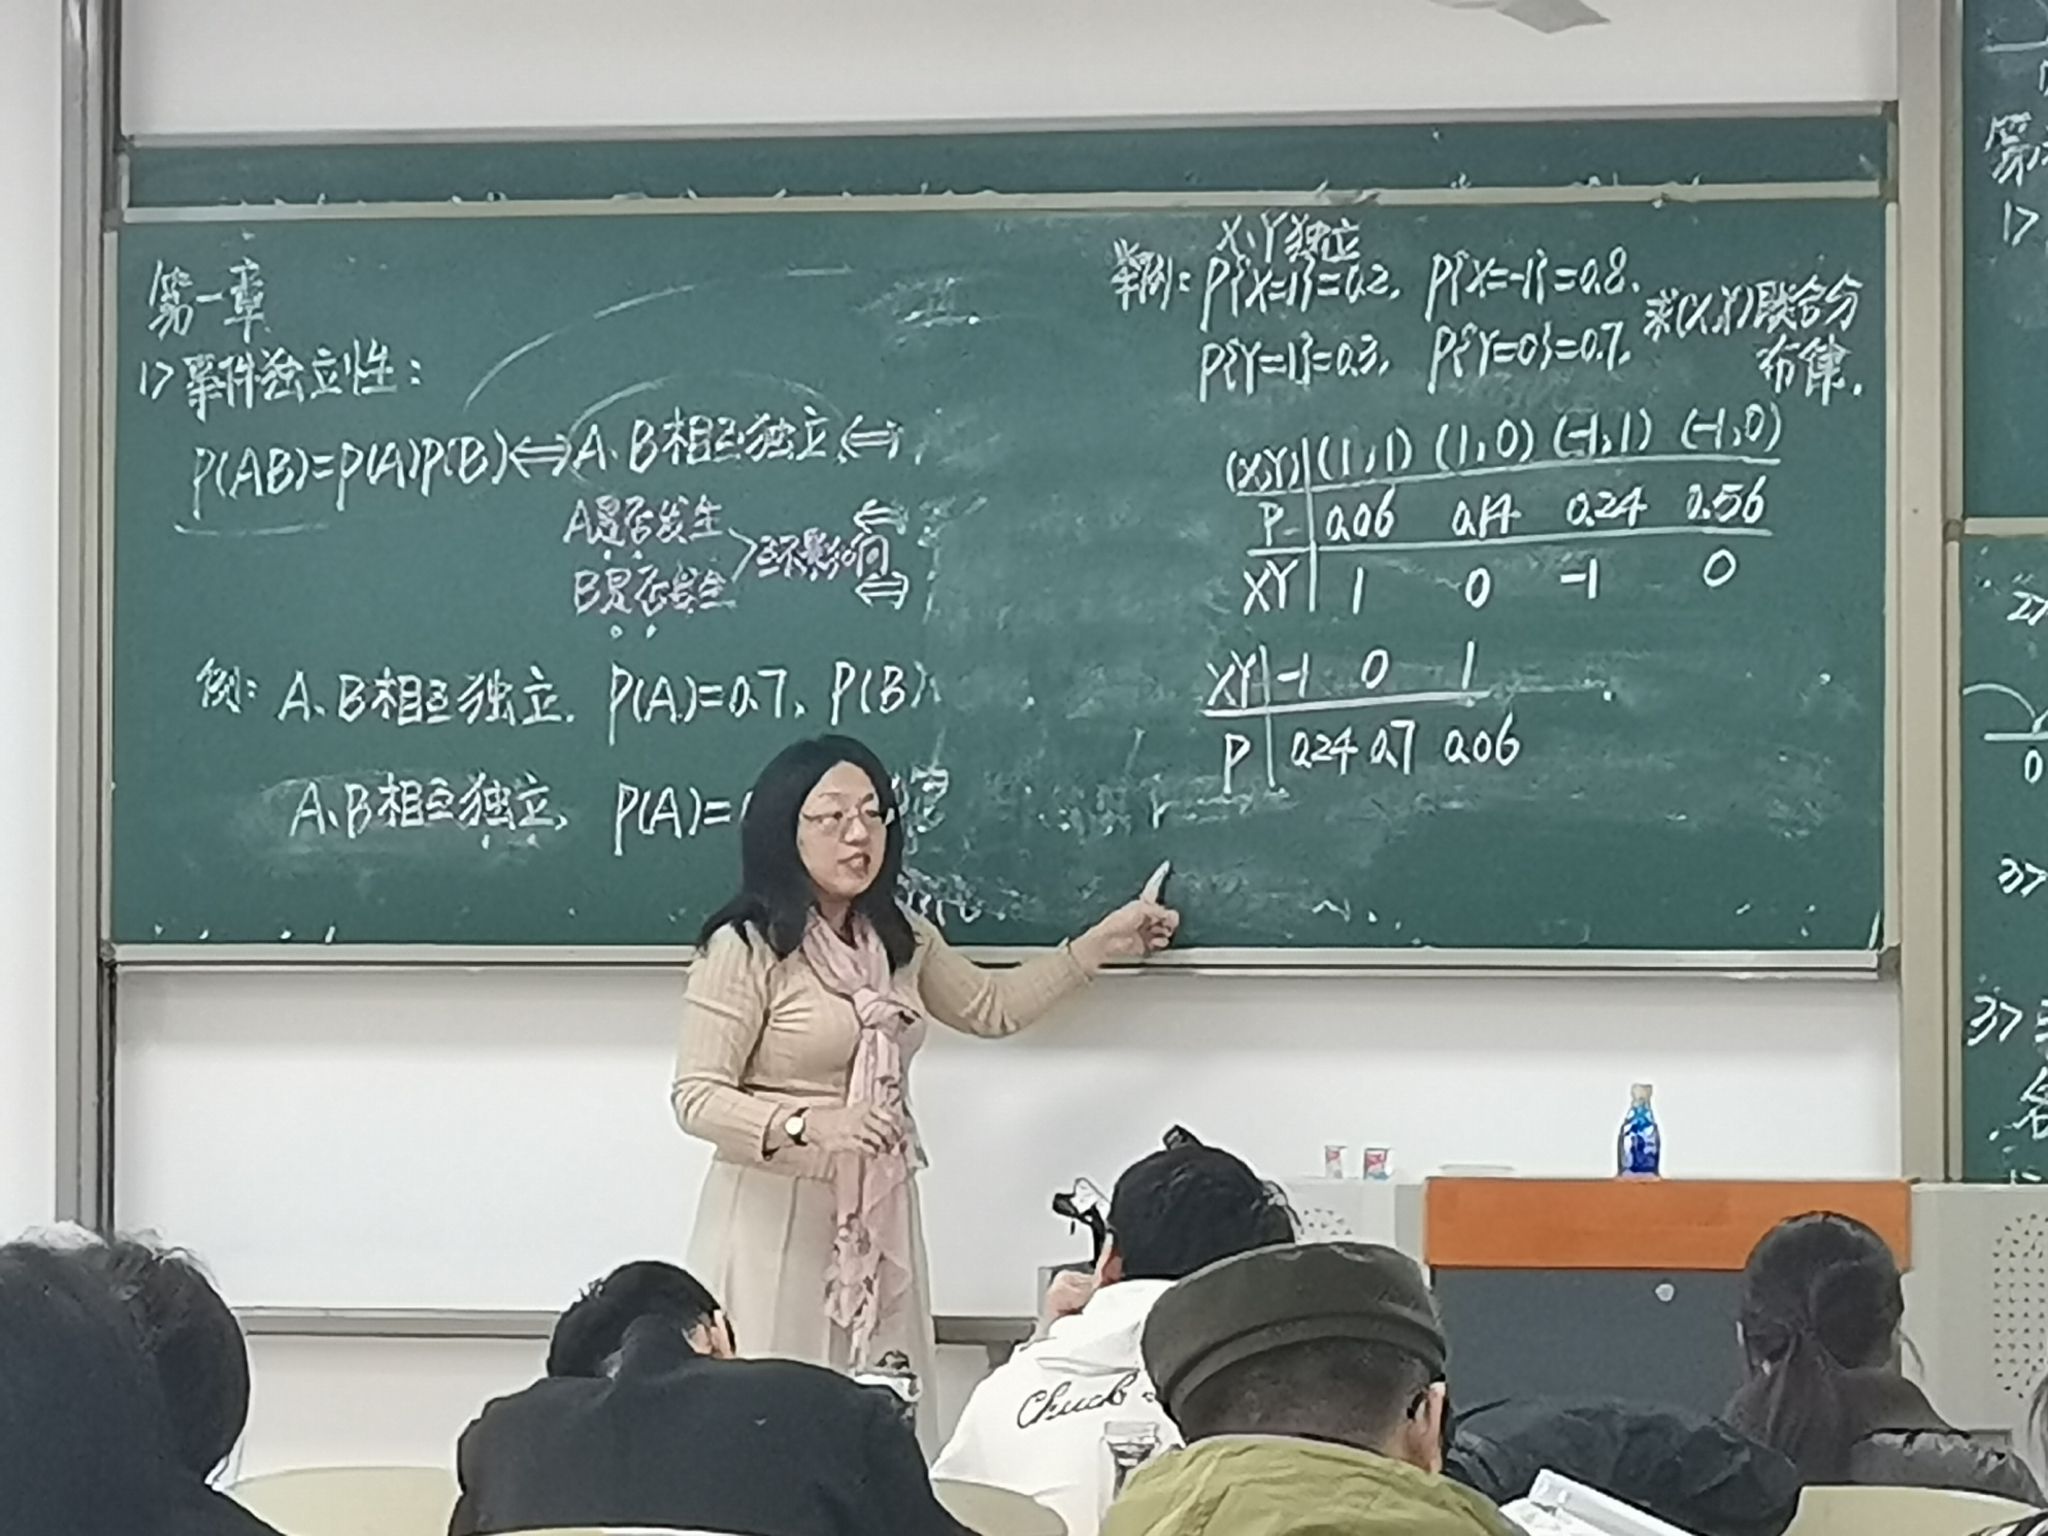 第一章
1> 事件独立性：
P(AB)=P(A)P(B)⇔A、B相互独立⇔
A是否发生
B是否发生
互不影响
⇔
⇔
例：A、B相互独立. P(A)=0.7, P(B)
A、B相互独立, P(A)=
X、Y独立
举例：P{X=1}=0.2, P{X=-1}=0.8.
P{Y=1}=0.3, P{Y=0}=0.7.
求(X,Y)联合分
布律.
(X,Y) (1,1) (1,0) (-1,1) (-1,0)
P 0.06 0.14 0.24 0.56
XY 1 0 -1 0
XY -1 0 1
P 0.24 0.7 0.06
第
1>
2>
0
3>
3>
Chuck